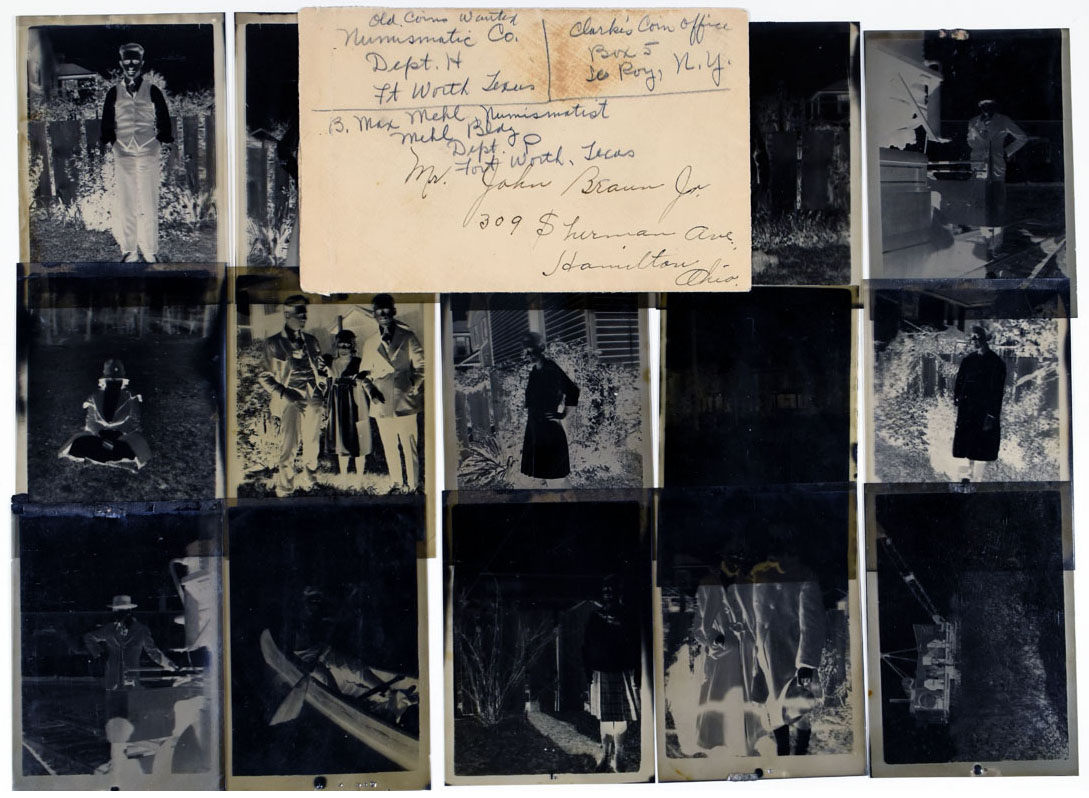 Old Coins Wanted
Numismatic Co.
Dept. H
Ft Worth Texas
Clarke's Coin Office
Box 5
Le Roy, N.Y.
B. Max Mehl, Numismatist
Mehl Bldg
Dept. P
Fort Worth, Texas
Mr. John Braun Jr.
309 Sherman Ave.
Hamilton
Ohio.